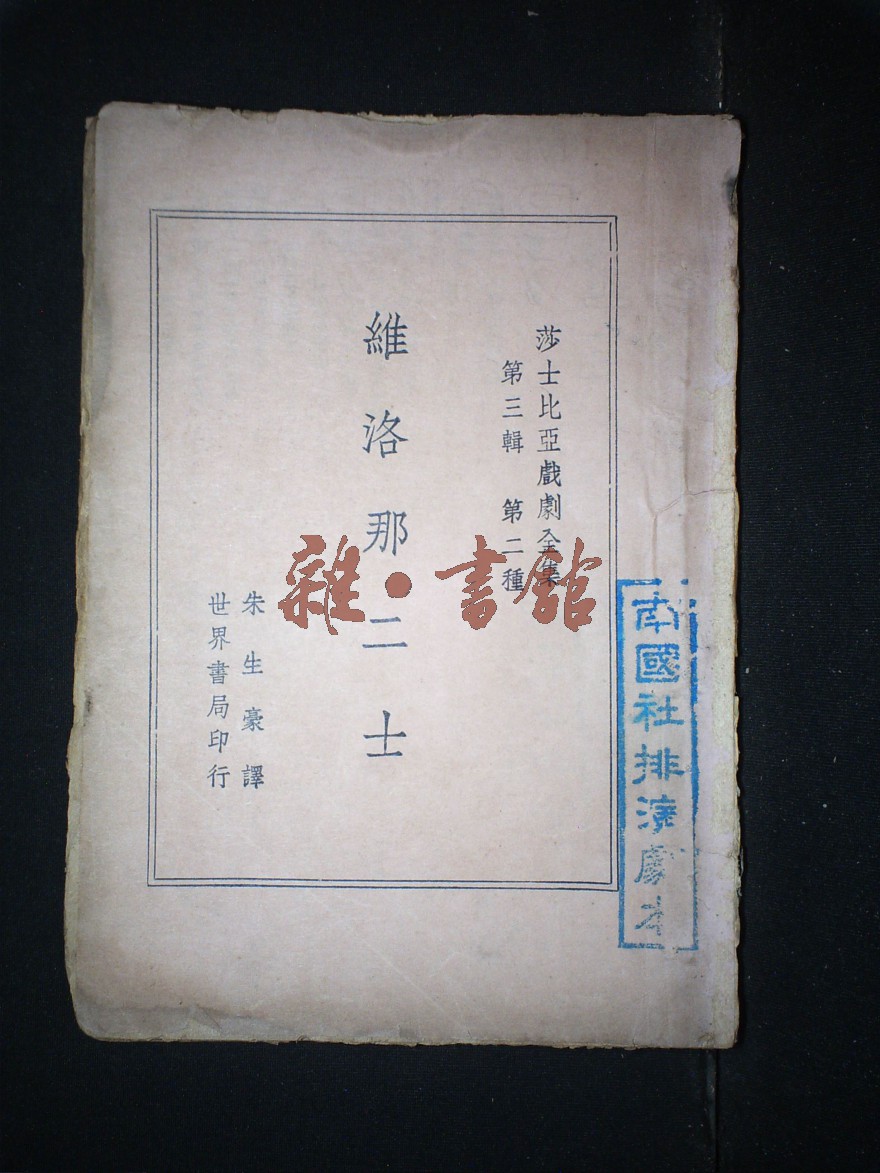 莎士比亞戲劇全集
第三輯 第二種
維洛那二士
朱生豪譯
世界書局印行
南國社排演劇本
雜·書館